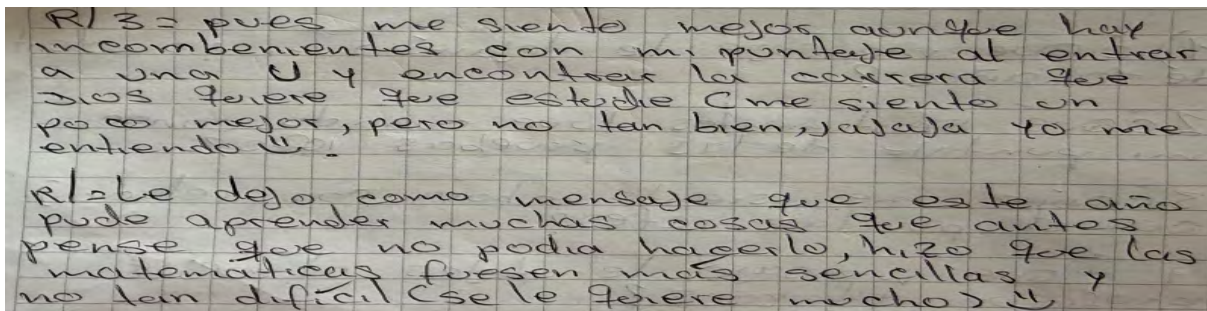 R/3= pues me siento mejor aunque hay
incombenientes con mi puntaje al entrar
a una U y encontrar la carrera que
Dios quiere que estudie (me siento un
poco mejor, pero no tan bien, jajaja yo me
entiendo ü.
R/=Le dejo como mensaje que este año
pude aprender muchas cosas que antes
pense que no podia hacerlo, hizo que las
matemáticas fuesen más sencillas y
no tan difícil (se le quiere mucho) ü